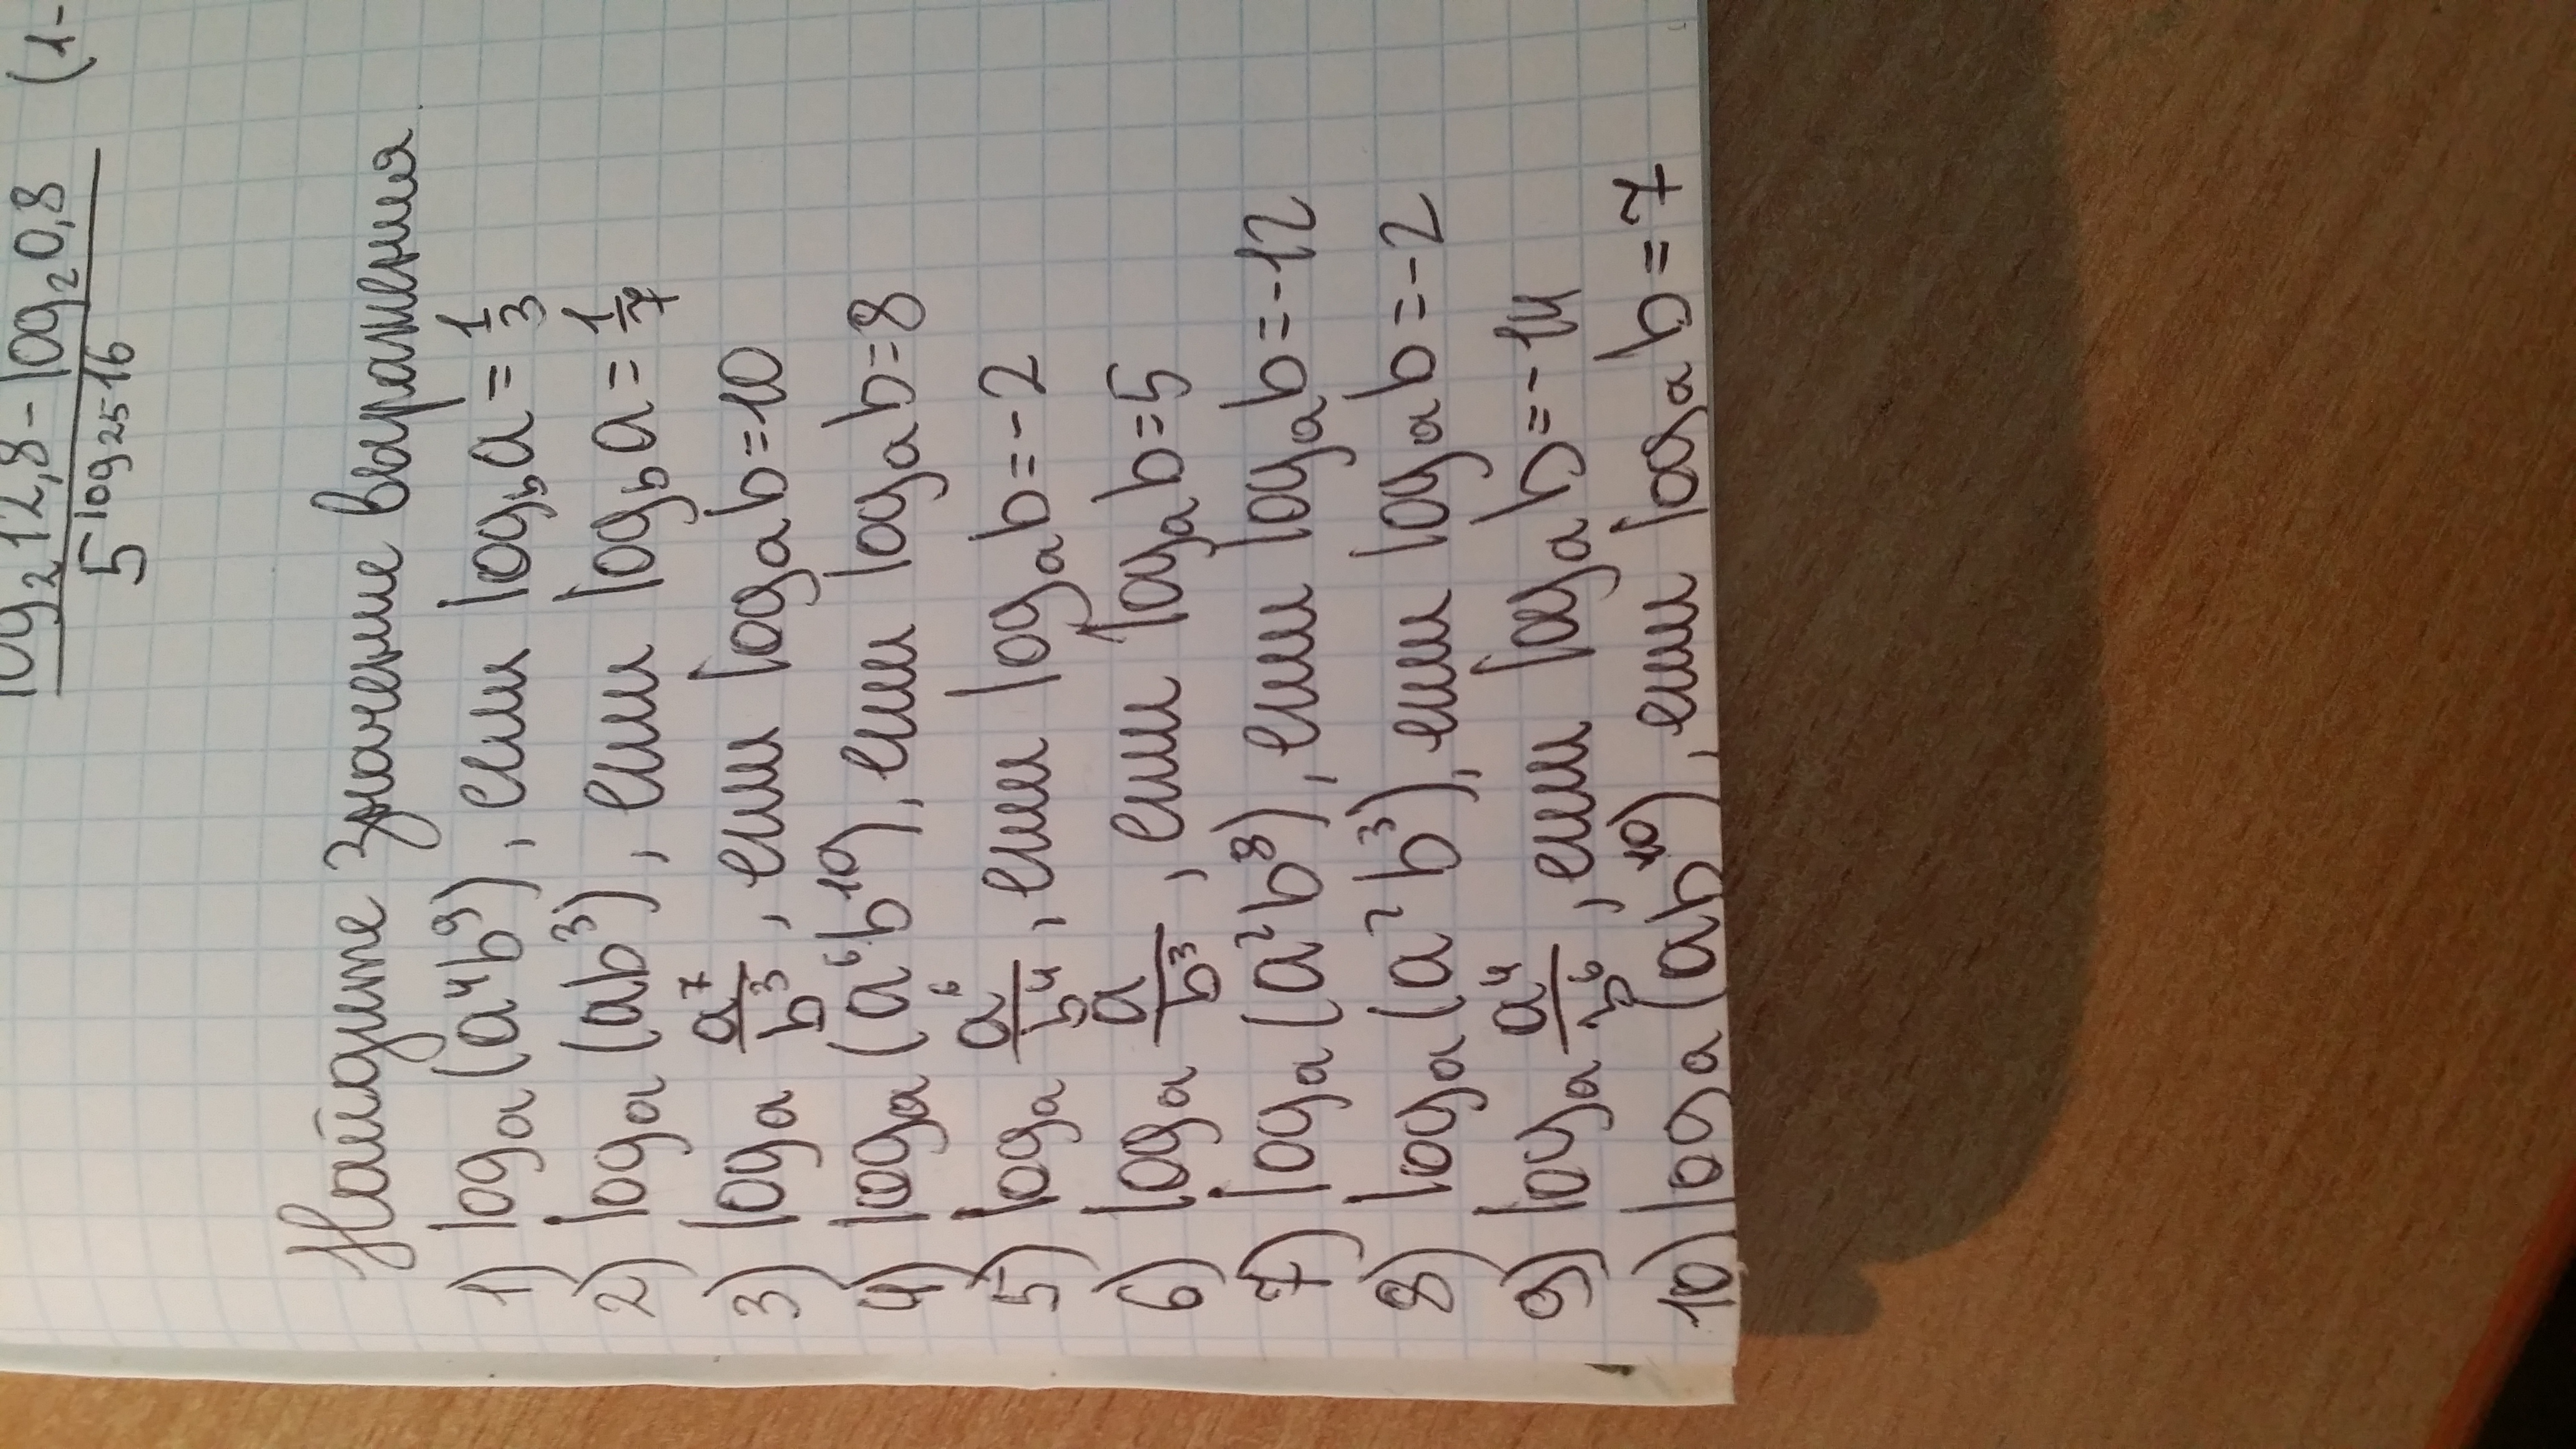 log₂12,8 - log₂0,8 (1-
5^log₂₅16
Найдите значение выражения
1) logₐ(a⁴b⁹), если log_b a = 1/3
2) logₐ(ab³), если log_b a = 1/7
3) logₐ a⁷/b³, если logₐb=10
4) logₐ(a⁶b¹⁰), если logₐb=8
5) logₐ a⁶/b⁴, если logₐb=-2
6) logₐ a/b³, если logₐb=5
7) logₐ(a²b⁸), если logₐb=-12
8) logₐ(a²b³), если logₐb=-2
9) logₐ a⁴/b⁶, если logₐb=-14
10) logₐ(ab¹⁰), если logₐb=7